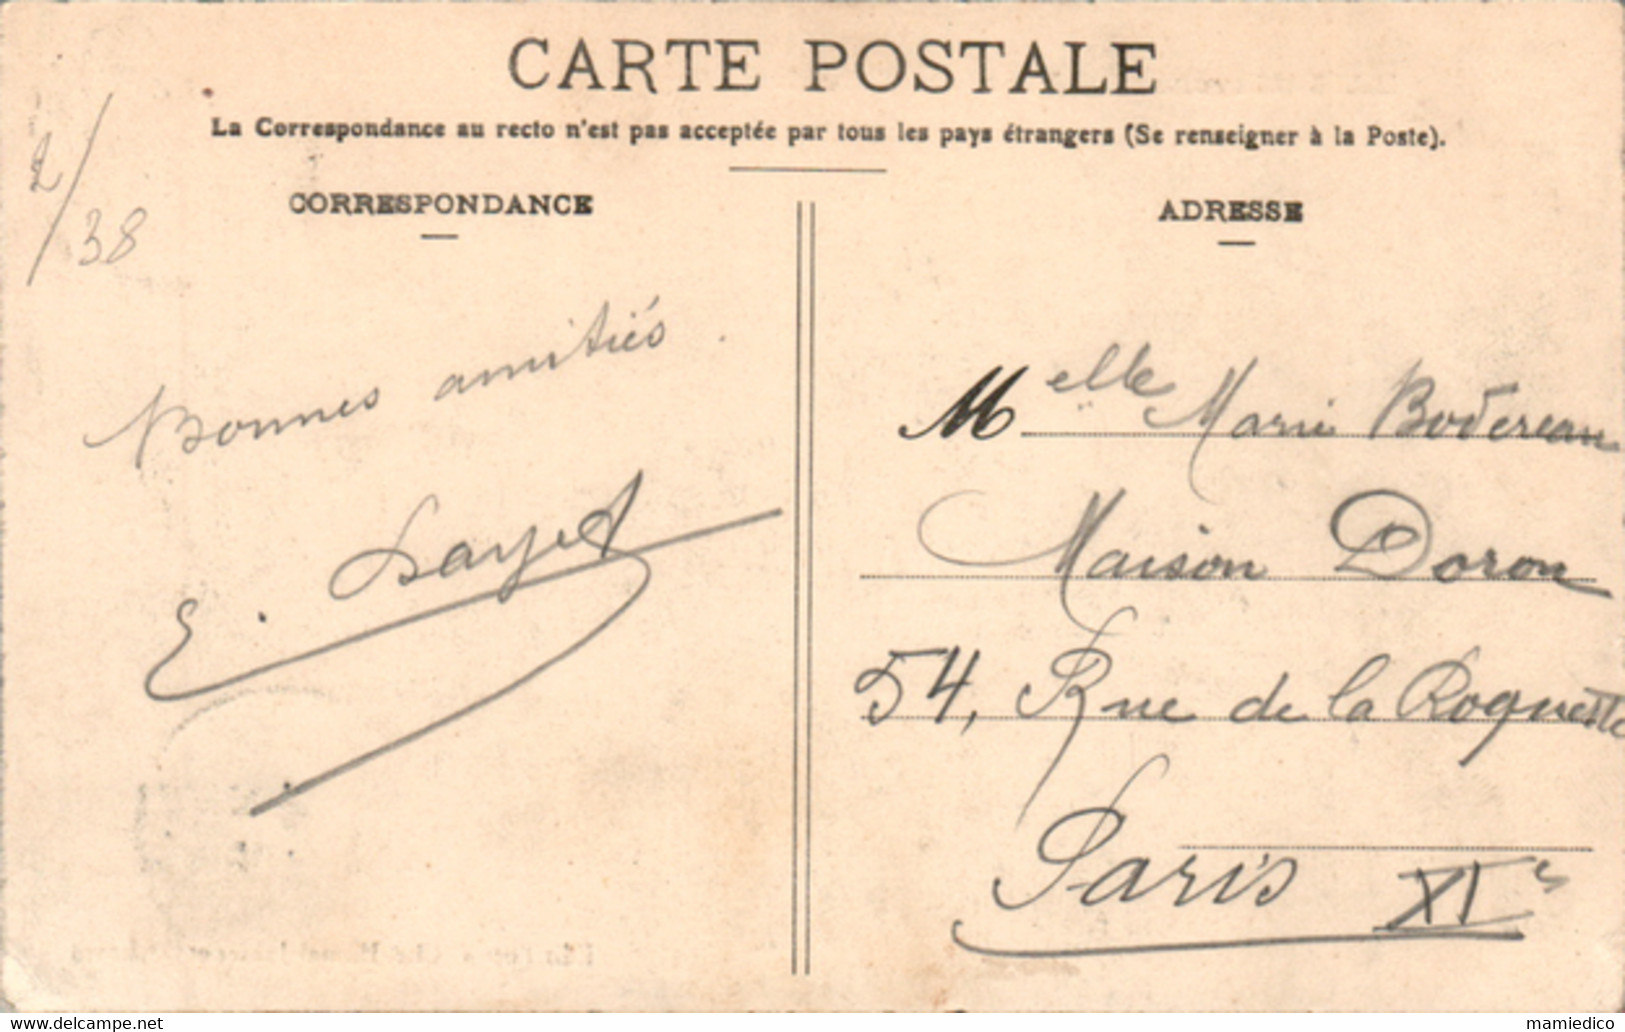 CARTE POSTALE
La Correspondance au recto n'est pas acceptée par tous les pays étrangers (Se renseigner à la Poste).
CORRESPONDANCE
2/38
Bonnes amitiés.
E.
ADRESSE
Melle Marie Bodereau
Maison Doron
54, Rue de la Roquette
Paris XIe
https://www.delcampe.net
mamiedico